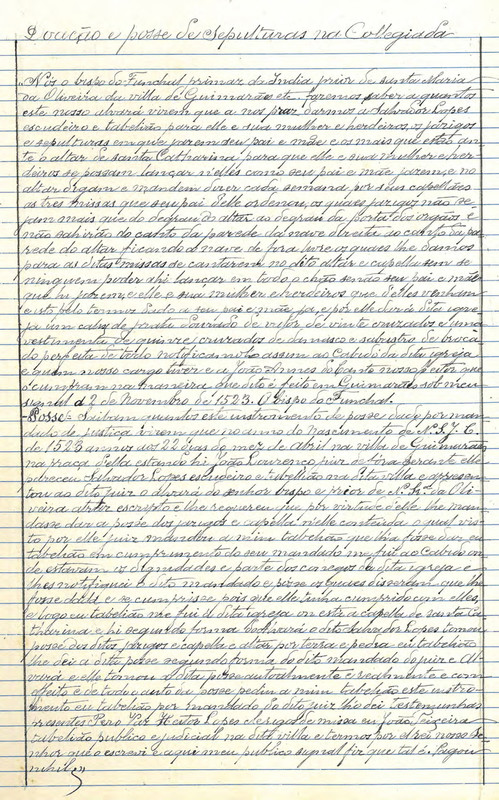 Doação e posse de sepulturas na Collegiada
„Nós o bispo do Funchal primaz da India prior de santa Maria
da Oliveira da villa de Guimarães etc. fazemos saber a quantos
este nosso alvará virem que a nos praz darmos a Salvador Lopes
escudeiro e tabelião, para elle e sua mulher e herdeiros, os jazigos
e sepulturas em que jazem seu pai e mãe e os mais que estão an-
te o altar de santa Catharina, para que elle e sua mulher e her-
deiros se possam lançar n'elles como seu pai e mãe jazem, e no
altar digam e mandem dizer cada semana por seus capellães
as tres missas que seu pai d'elle ordenou, os quaes jazigos não se-
jam mais que do degrau do altar ao degrau da porta dos orgãos e
não sahirão do canto da parede da nave direito ao canto da pa-
rede do altar ficando a nave de fora, os quaes lhe damos
para as ditas missas se cantarem no dito altar e capella sem se
ninguem poder ahi lançar em todo o chão senão seu pai e mãe
que hi jazem, e elle e sua mulher e herdeiros que d'elles venham
e isto pelo termos dado a seu pai e mãe já, e por elle dar á dita igre-
ja um calix de prata dourado de valor de vinte cruzados e uma
vestimenta de quinze cruzados de damasco e savastro de broca-
do perfeita de todo notificamol-o assim ao cabido da dita igreja
e quem nosso cargo tiver e a João Annes do Canto nosso feitor que
o cumpram na maneira que dito é feito em Guimarães sob meu
signal a 2 de Novembro de 1523. O bispo do Funchal.
– Posse – Saibam quantos este instrumento de posse dado por man-
dado de justiça virem que no anno do nascimento de N. S. J. C.
de 1523 annos aos 22 dias do mez de Abril na villa de Guimarães
na praça d'ella estando hi João Lourenço juiz de fora perante elle
pareceu Salvador Lopes escudeiro e tabelião na dita villa e apresen-
tou ao dito juiz o alvará do senhor bispo e prior de N. Sr.ª da Oli-
veira atraz escripto e lhe requereu que por virtude d'elle lhe man-
dasse dar a posse dos jazigos e capella n'elle contheuda o qual vis-
to por elle juiz mandou a mim tabelião que lha fosse dar eu
tabelião em cumprimento do seu mandado me fui ao Cabido on-
de estavam os dignidades e parte dos conegos da dita igreja e
lhes notifiquei o dito mandado e posse os quaes disseram que lhe
fosse dada e se cumprisse pois que elle tinha cumprido com elles,
e logo eu tabelião me fui á dita igreja on está a capella de santa Ca-
tharina e hi segundo forma do Alvará o dito Salvador Lopes tomou
posse dos ditos jazigos e capella e altar por terra e pedra eu tabelião
lhe dei a dita posse segundo forma do dito mandado do juiz e Al-
vará e elle tomou a dita posse autoalmente e realmente e com
effeito e de todo o auto da posse pediu a mim tabelião este instru-
mento eu tabelião por mandado do dito juiz lho dei. Testemunhas
presentes Pero Vaz Heitor Lopes clerigos de missa eu João Teixeira
tabelião publico e judicial na dita villa e termos por el-rei nosso se-
nhor que o escrevi e aqui meu publico signal fiz que tal é. Pagou
nihil„